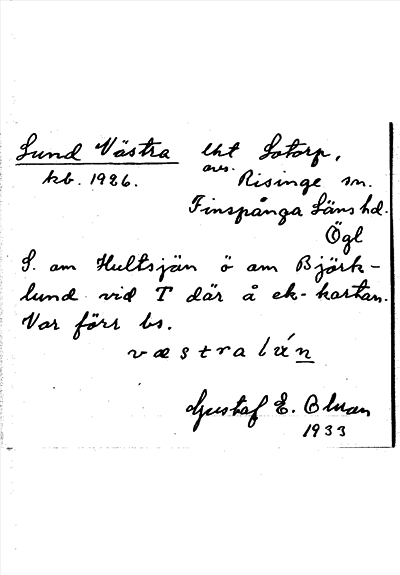 Lund Västra lht Lotorp,
kb. 1926. avs. Risinge sn.
Finspånga Läns hd.
Ögl
S. om Hultsjön ö om Björk-
lund vid T där å ek-kartan.
Var förr bs.
Gustaf E.
1933